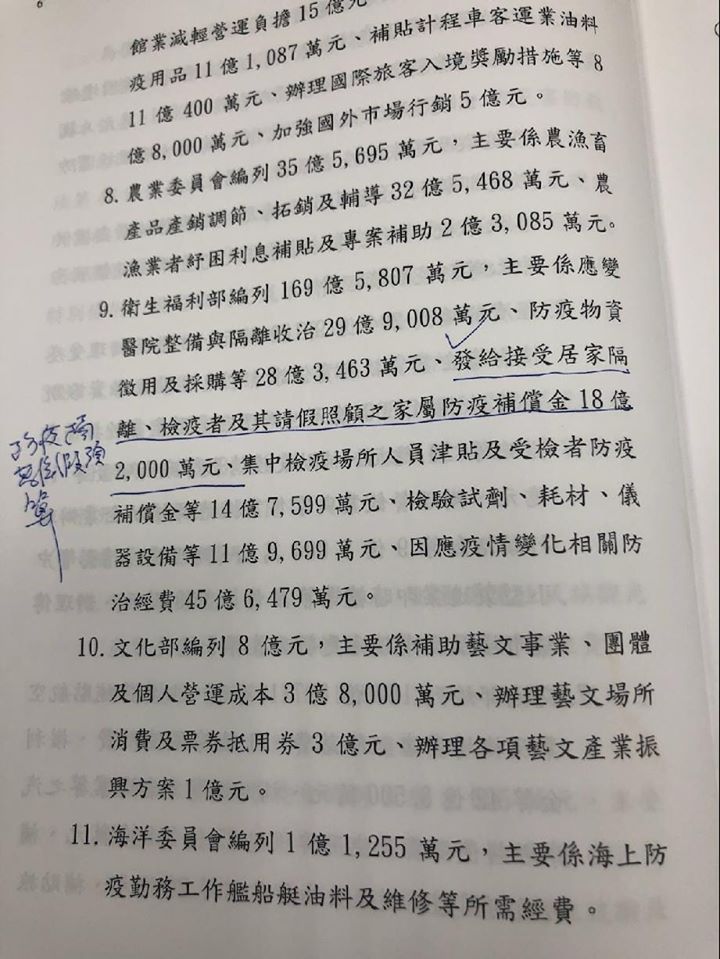 館業減輕營運負擔 15 億元
疫用品 11 億 1,087 萬元、補貼計程車客運業油料
11 億 400 萬元、辦理國際旅客入境獎勵措施等 8
億 8,000 萬元、加強國外市場行銷 5 億元。
8. 農業委員會編列 35 億 5,695 萬元，主要係農漁畜
產品產銷調節、拓銷及輔導 32 億 5,468 萬元、農
漁業者紓困利息補貼及專案補助 2 億 3,085 萬元。
9. 衛生福利部編列 169 億 5,807 萬元，主要係應變
醫院整備與隔離收治 29 億 9,008 萬元、防疫物資
徵用及採購等 28 億 3,463 萬元、發給接受居家隔
離、檢疫者及其請假照顧之家屬防疫補償金 18 億
2,000 萬元、集中檢疫場所人員津貼及受檢者防疫
補償金等 14 億 7,599 萬元、檢驗試劑、耗材、儀
器設備等 11 億 9,699 萬元、因應疫情變化相關防
治經費 45 億 6,479 萬元。
10. 文化部編列 8 億元，主要係補助藝文事業、團體
及個人營運成本 3 億 8,000 萬元、辦理藝文場所
消費及票券抵用券 3 億元、辦理各項藝文產業振
興方案 1 億元。
11. 海洋委員會編列 1 億 1,255 萬元，主要係海上防
疫勤務工作艦船艇油料及維修等所需經費。
防疫
假預
算